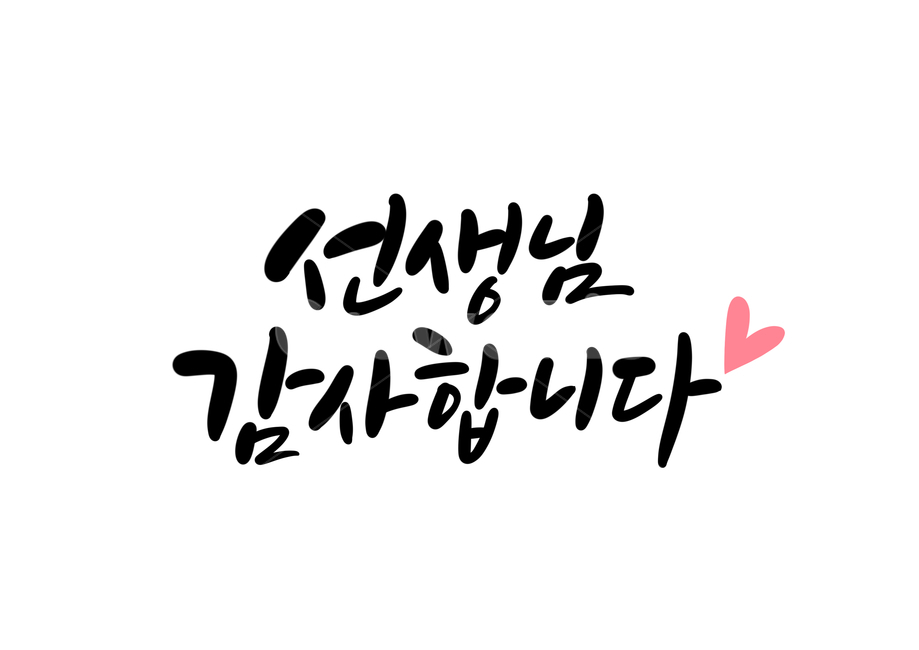 선생님
감사합니다